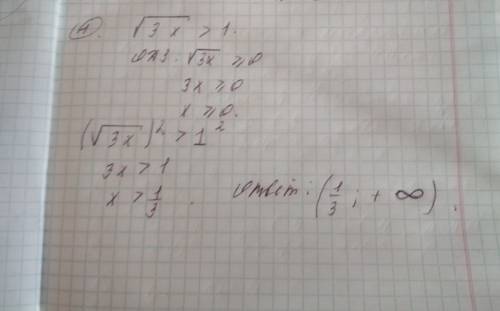 4. √3x > 1.
ОДЗ: √3x ≥ 0
3x ≥ 0
x ≥ 0.
(√3x)² > 1²
3x > 1
x > 1/3. Ответ: (1/3; + ∞).